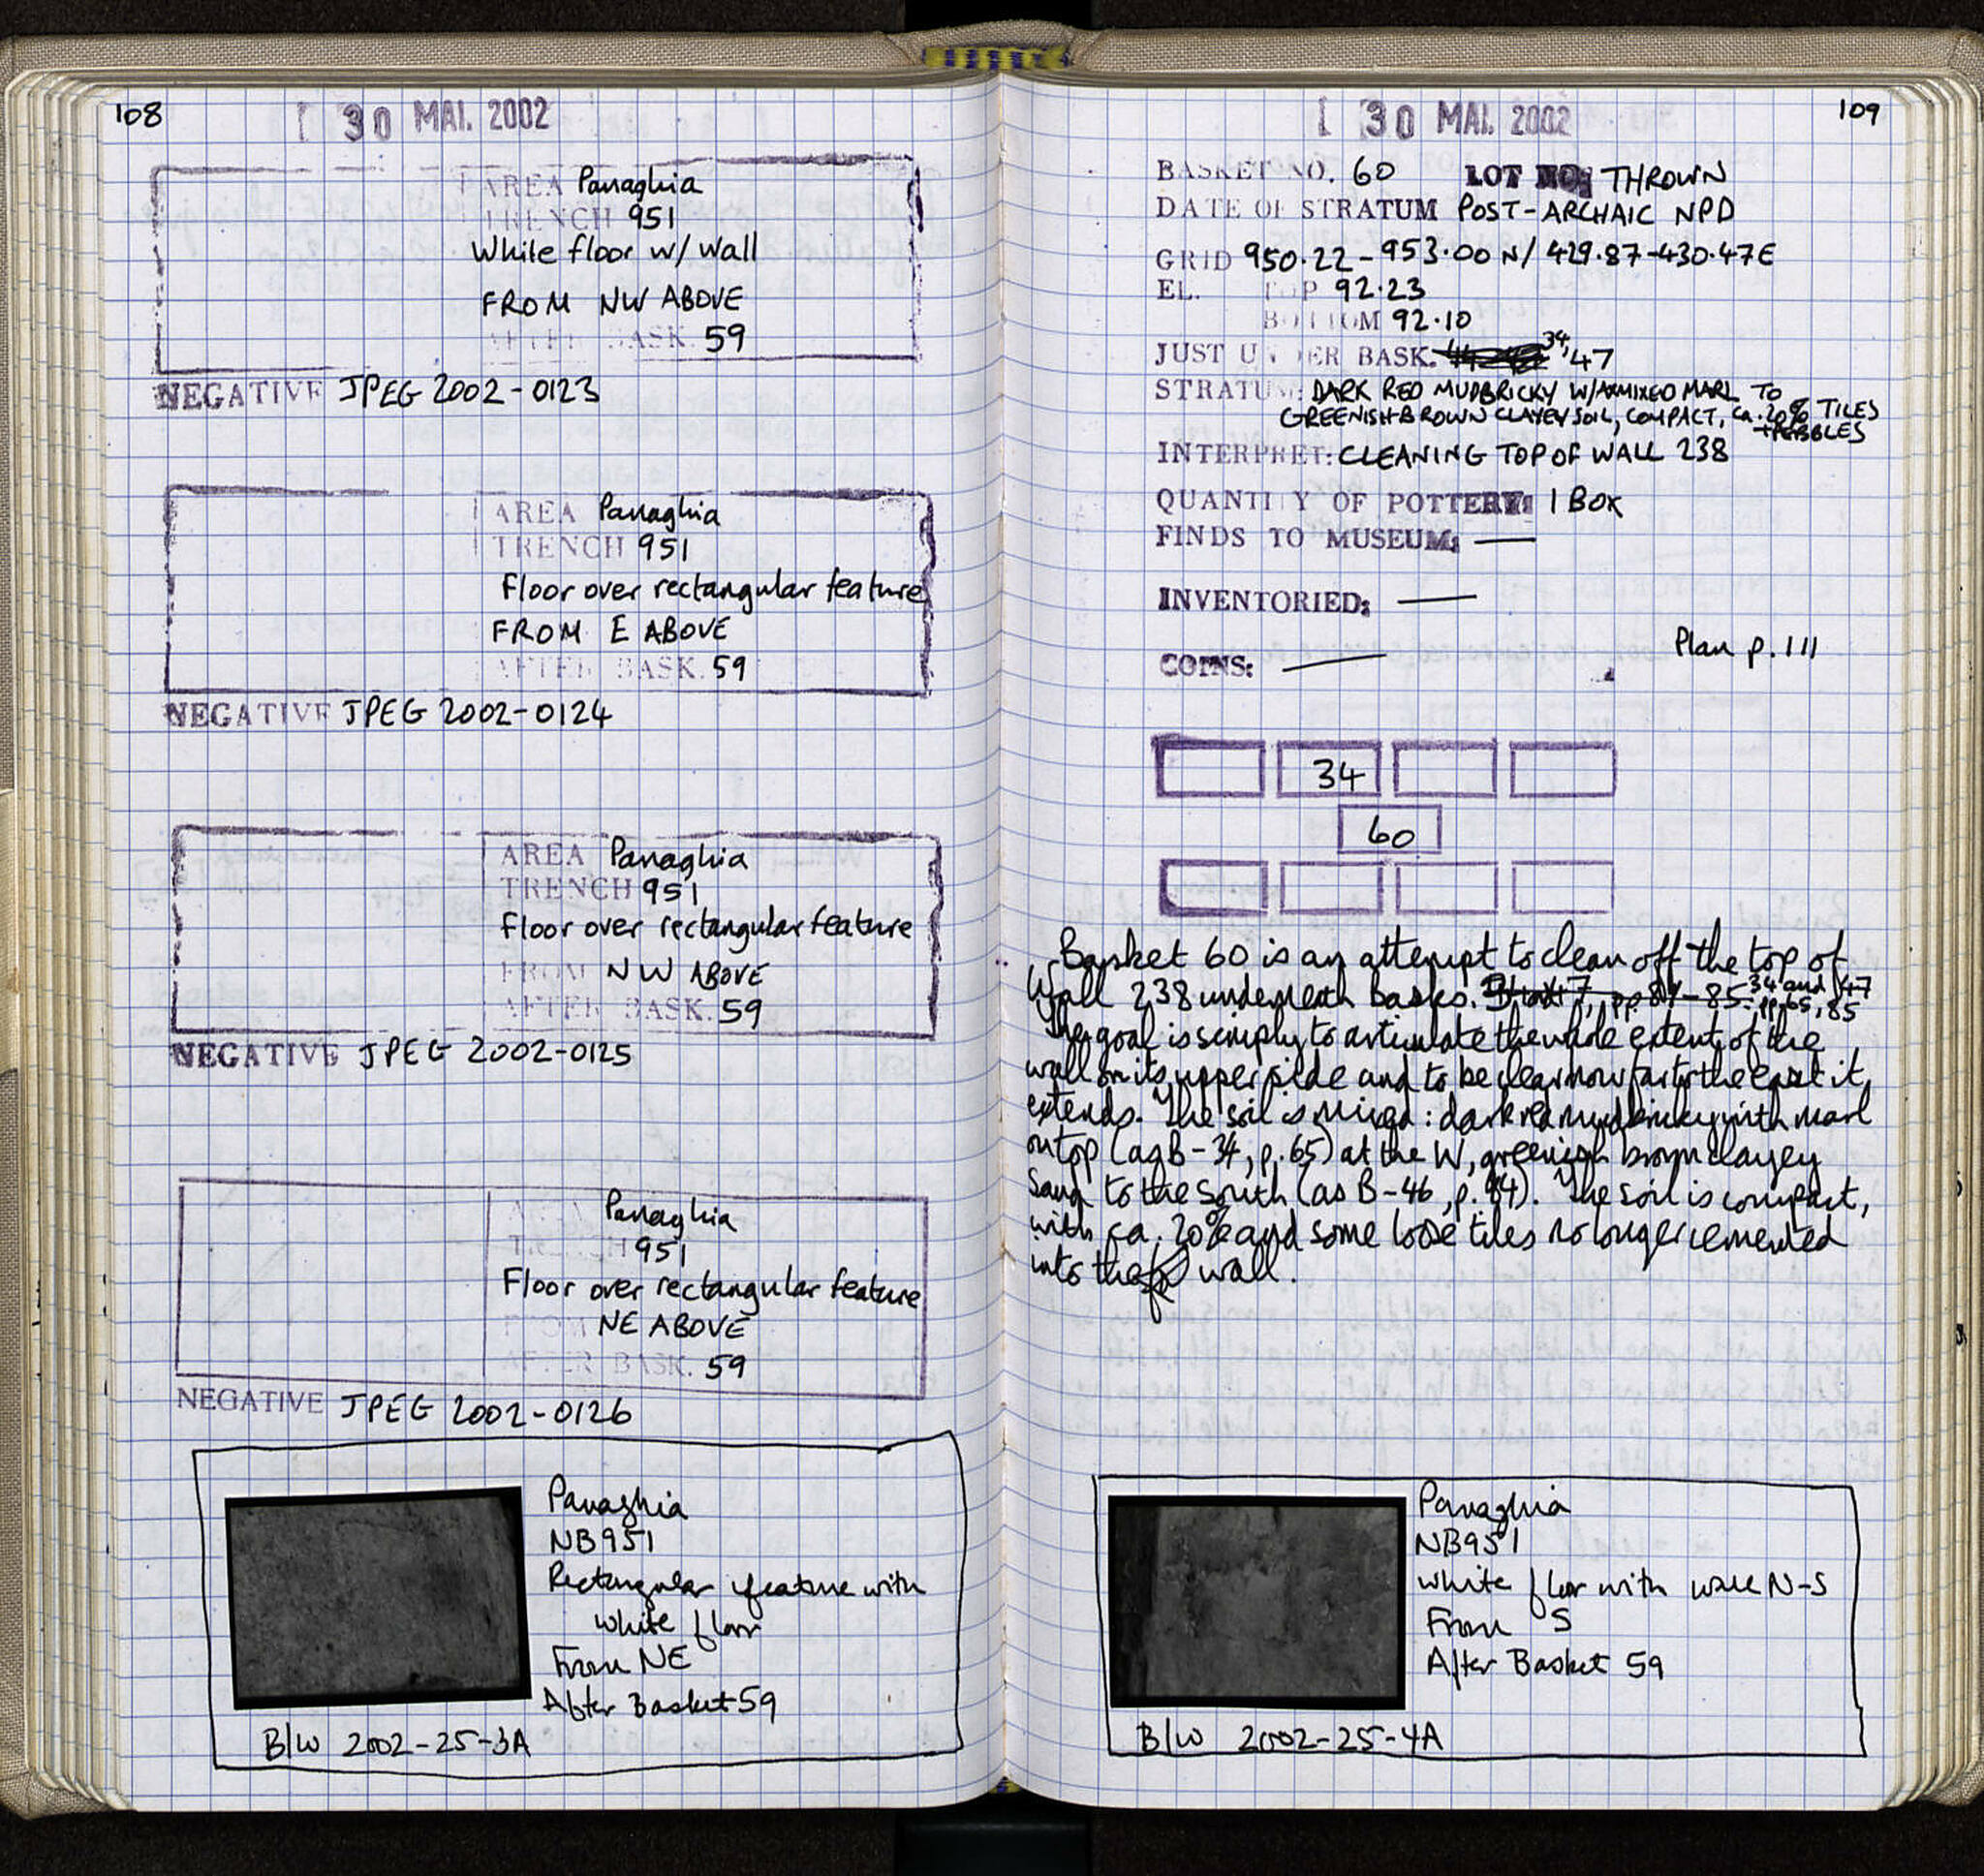 108
30 MAI. 2002
AREA Panaghia
TRENCH 951
White floor w/ wall
FROM NW ABOVE
AFTER BASK. 59
NEGATIVE JPEG 2002-0123
AREA Panaghia
TRENCH 951
Floor over rectangular feature
FROM E ABOVE
AFTER BASK. 59
NEGATIVE JPEG 2002-0124
AREA Panaghia
TRENCH 951
Floor over rectangular feature
FROM NW ABOVE
AFTER BASK. 59
NEGATIVE JPEG 2002-0125
AREA Panaghia
TRENCH 951
Floor over rectangular feature
FROM NE ABOVE
AFTER BASK. 59
NEGATIVE JPEG 2002-0126
Panaghia
NB951
Rectangular feature with
white floor
From NE
After Basket 59
B/W 2002-25-3A
30 MAI. 2002
109
BASKET NO. 60 LOT NO: THROWN
DATE OF STRATUM POST-ARCHAIC NPD
GRID 950.22-953.00 N/ 429.87-430.47E
EL. TOP 92.23
BOTTOM 92.10
JUST UNDER BASK. 34, 47
STRATUM: DARK RED MUDBRICKY W/ADMIXED MARL TO
GREENISH BROWN CLAYEY SOIL, COMPACT, ca. 20% TILES
+PEBBLES
INTERPRET: CLEANING TOP OF WALL 238
QUANTITY OF POTTERY: 1 BOX
FINDS TO MUSEUM: —
INVENTORIED: —
Plan p. 111
COINS: —
34
60
Basket 60 is an attempt to clean off the top of
Wall 238 underneath basks. 34 and 47
pp. 65, 85
The goal is simply to articulate the whole extent of the
wall on its upper side and to be clear how far to the east it
extends. The soil is mixed: dark red mudbricky with marl
on top (as B-34, p. 65) at the W, greenish brown clayey
sand to the south (as B-46, p. 84). The soil is compact,
with ca. 20% and some loose tiles no longer cemented
into the wall.
Panaghia
NB951
white floor with wall N-S
From S
After Basket 59
B/W 2002-25-4A